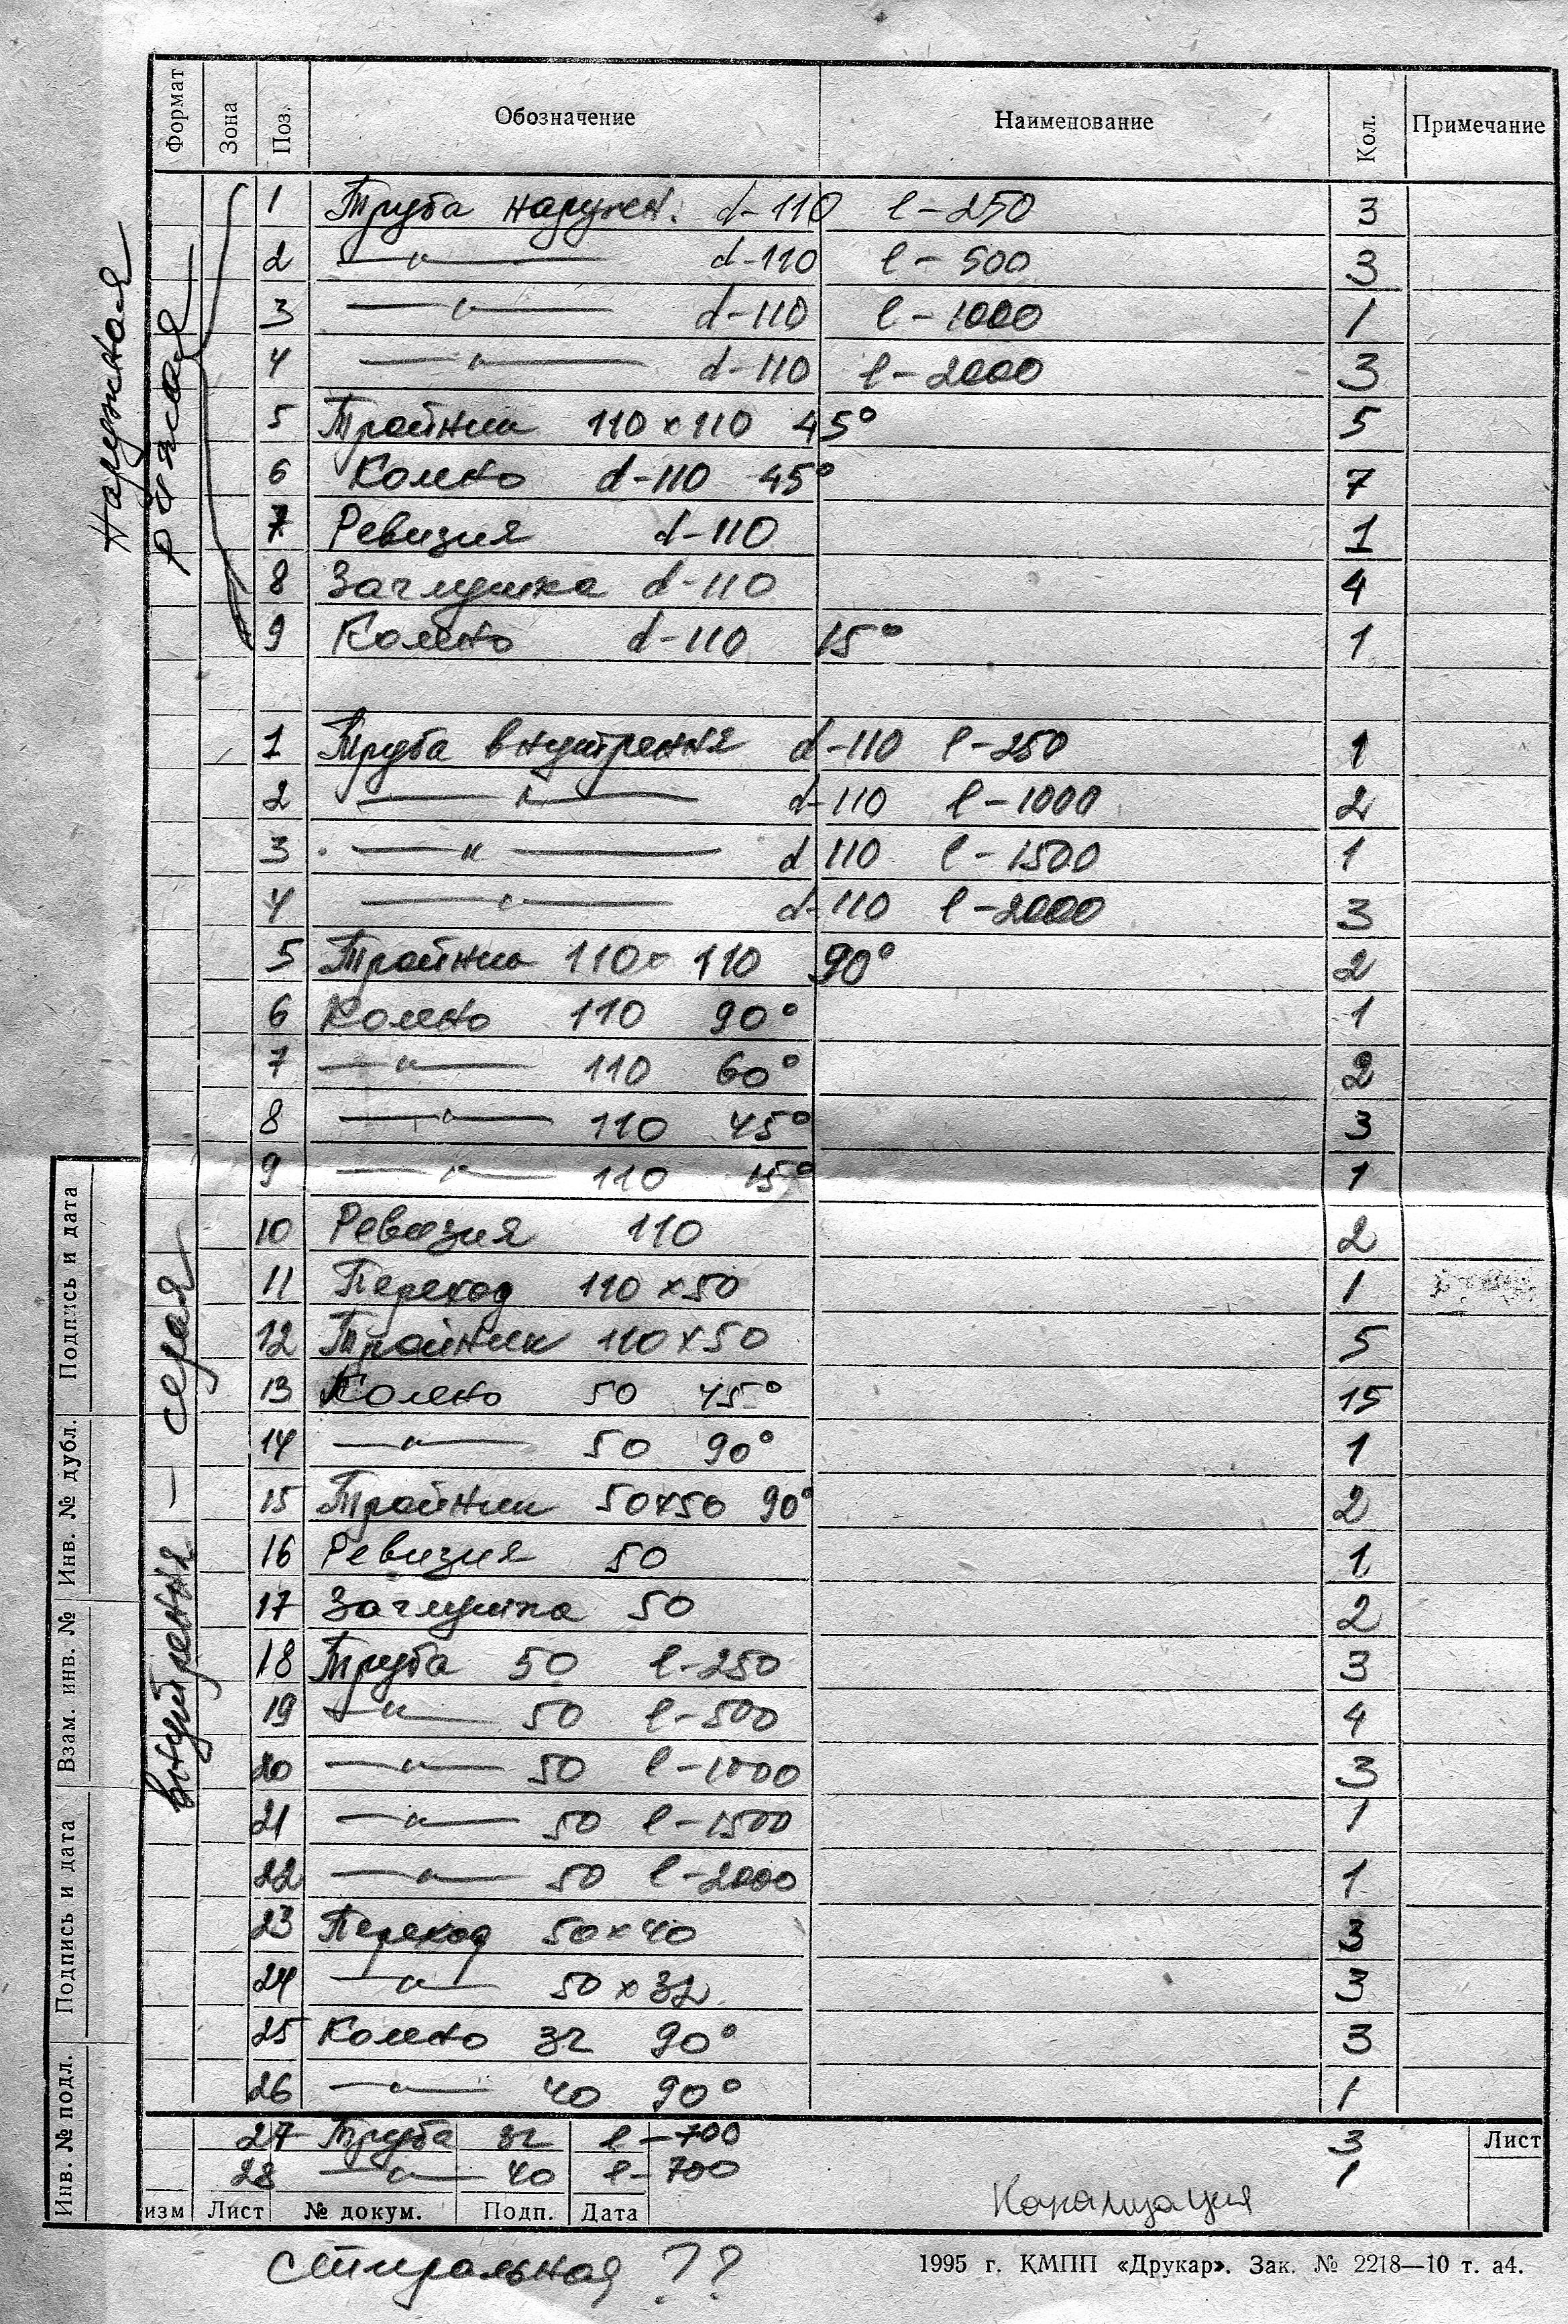 Формат Зона Поз. Обозначение Наименование Кол. Примечание
1 Труба наружн. d-110 l-250 3
2 —"— d-110 l-500 3
3 —"— d-110 l-1000 1
4 —"— d-110 l-2000 3
5 Тройник 110x110 45° 5
6 Колено d-110 45° 7
7 Ревизия d-110 1
8 Заглушка d-110 4
9 Колено d-110 15° 1
Наружная
рыжая
1 Труба внутрення d-110 l-250 1
2 —"— d-110 l-1000 2
3 —"— d 110 l-1500 1
4 —"— d-110 l-2000 3
5 Тройник 110x110 90° 2
6 Колено 110 90° 1
7 —"— 110 60° 2
8 —"— 110 45° 3
9 —"— 110 15° 1
10 Ревизия 110 2
11 Переход 110x50 1
12 Тройник 110x50 5
13 Колено 50 45° 15
14 —"— 50 90° 1
15 Тройник 50x50 90° 2
16 Ревизия 50 1
17 Заглушка 50 2
18 Труба 50 l-250 3
19 —"— 50 l-500 4
20 —"— 50 l-1000 3
21 —"— 50 l-1500 1
22 —"— 50 l-2000 1
23 Переход 50x40 3
24 —"— 50x32 3
25 Колено 32 90° 3
26 —"— 40 90° 1
27 Труба 32 l-700 3
28 —"— 40 l-700 1
внутрення - серая
Подпись и дата
Инв. № дубл.
Взам. инв. №
Подпись и дата
Инв. № подл.
изм Лист № докум. Подп. Дата
Канализация
Лист
стиральная ??
1995 г. КМПП «Друкар». Зак. № 2218—10 т. а4.